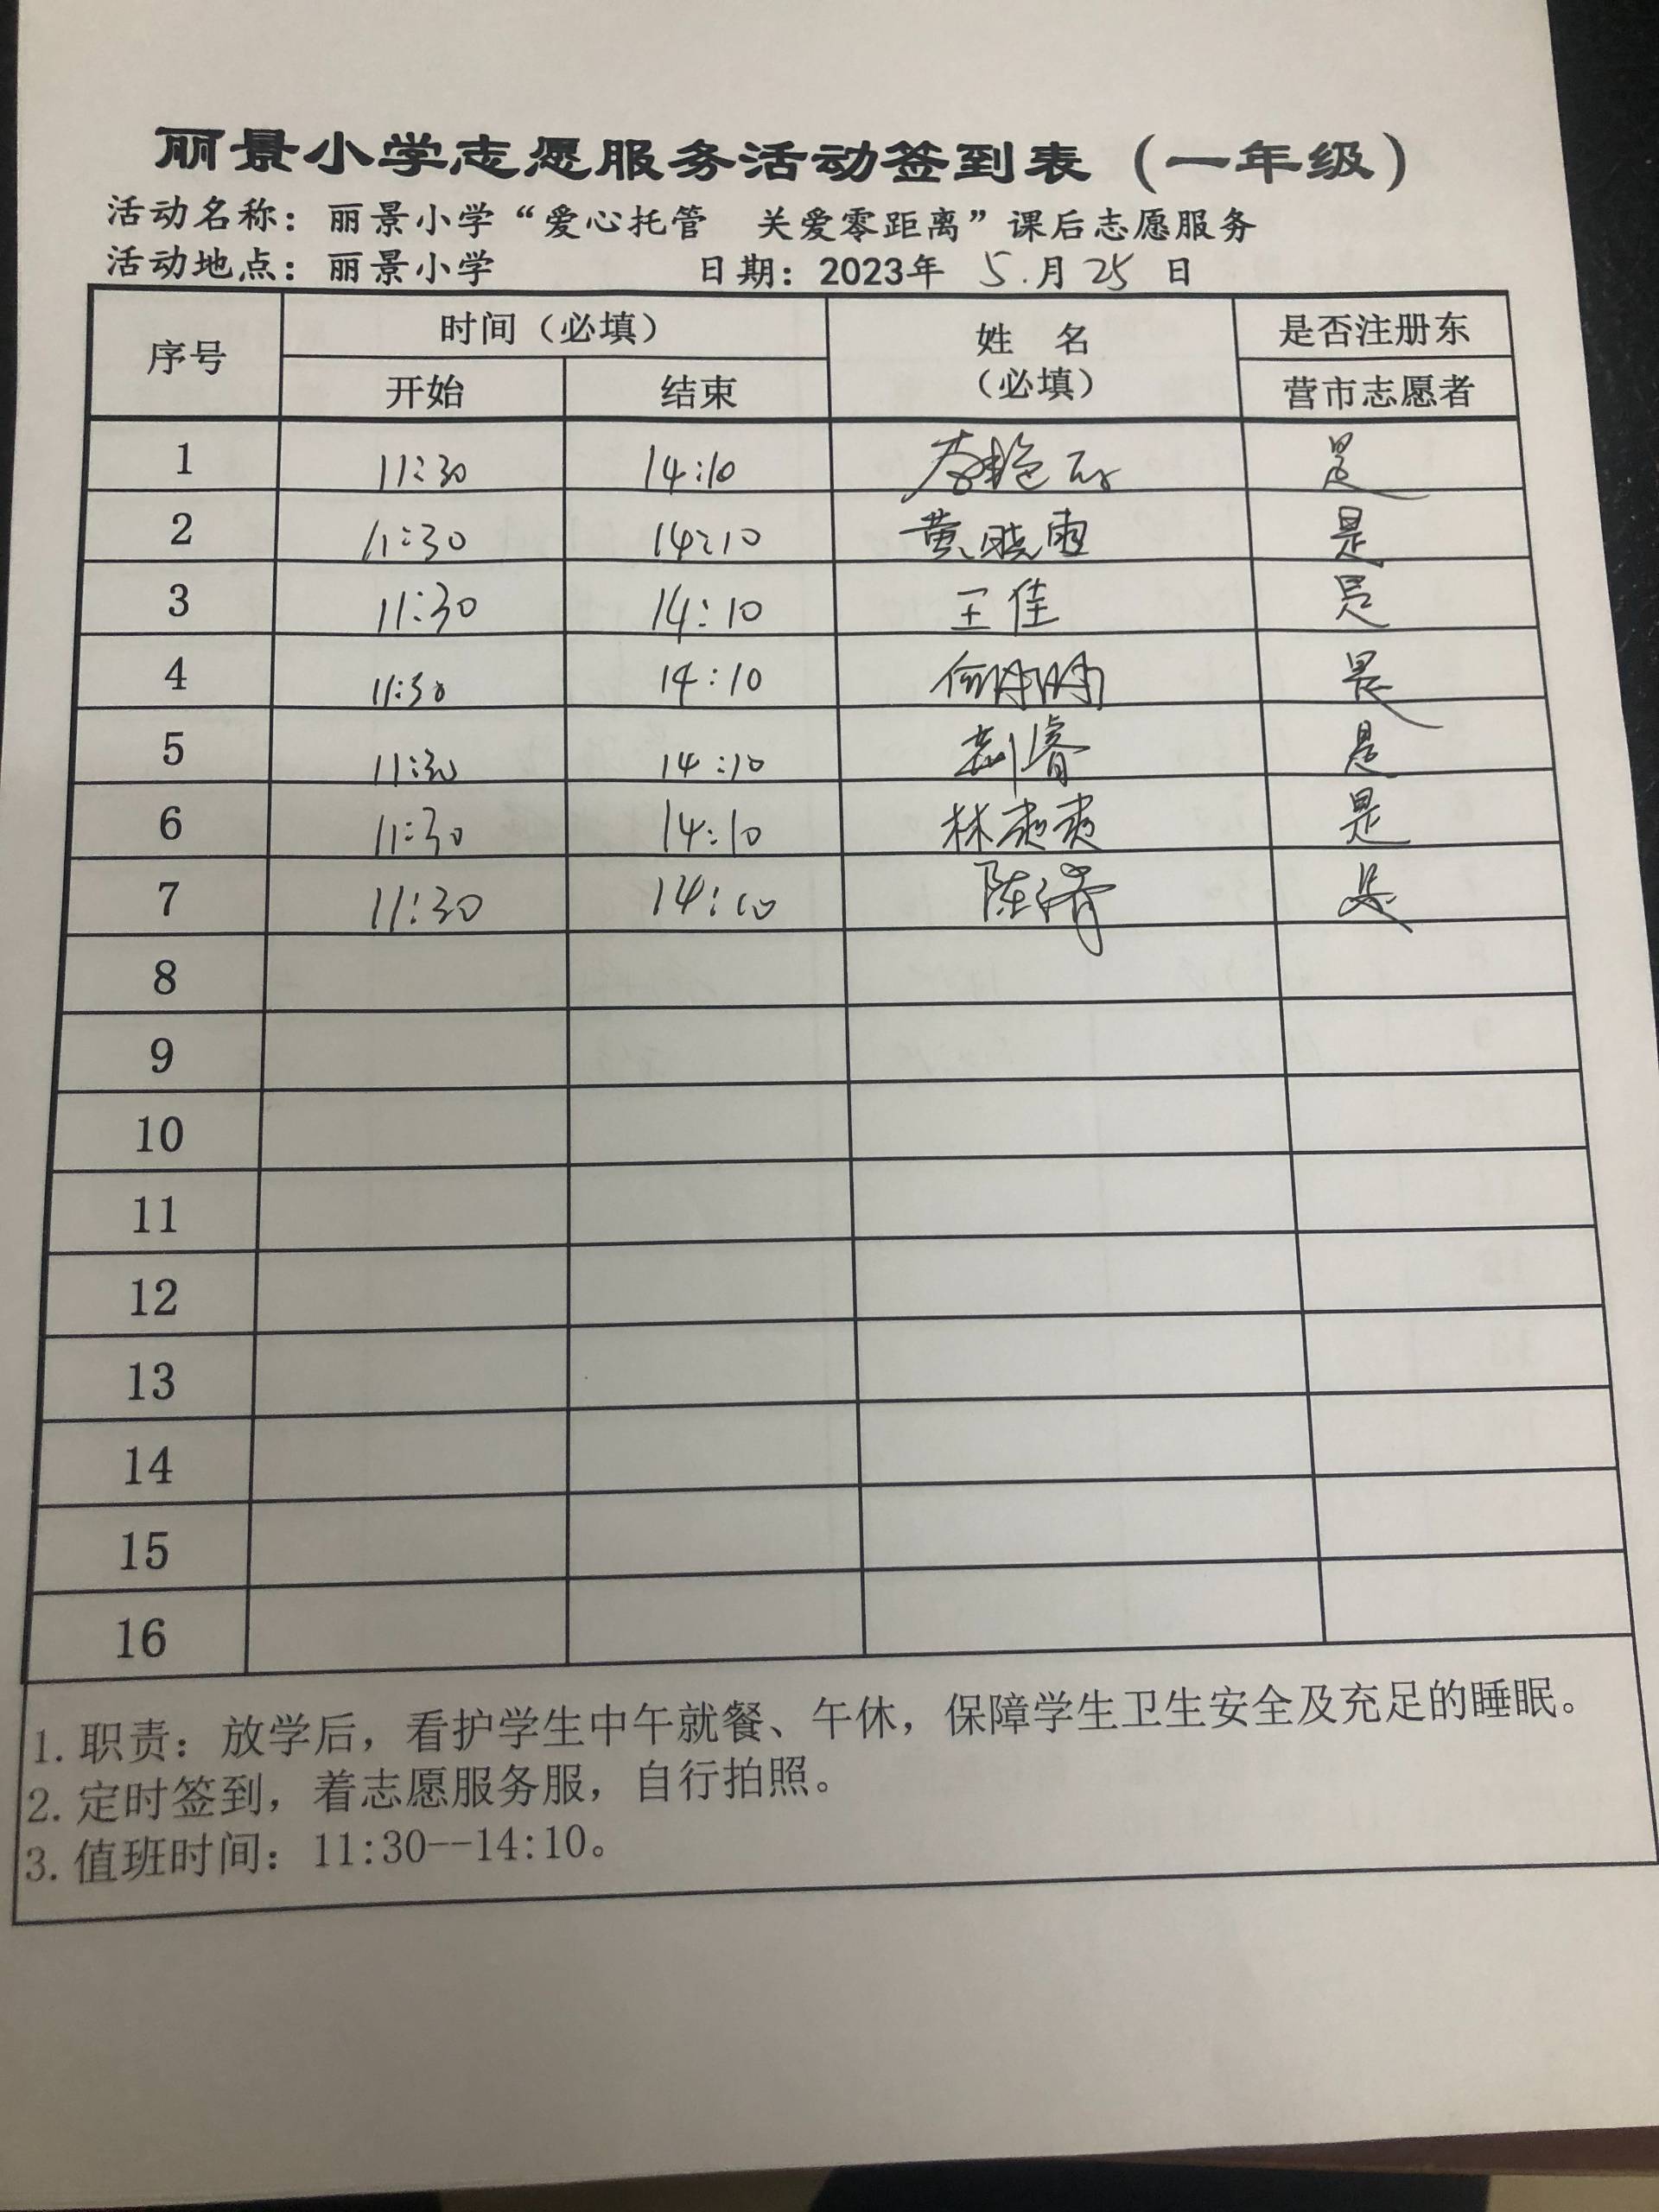 丽景小学志愿服务活动签到表（一年级）
活动名称：丽景小学“爱心托管 关爱零距离”课后志愿服务
活动地点：丽景小学 日期：2023年 5.月 25 日
序号 时间（必填） 姓 名 是否注册东
开始 结束 （必填） 营市志愿者
1 11:30 14:10 李艳 是
2 11:30 14:10 黄晓雨 是
3 11:30 14:10 王佳 是
4 11:30 14:10 是
5 11:30 14:10 睿 是
6 11:30 14:10 林爽爽 是
7 11:30 14:10 陈 是
8
9
10
11
12
13
14
15
16
1. 职责：放学后，看护学生中午就餐、午休，保障学生卫生安全及充足的睡眠。
2. 定时签到，着志愿服务服，自行拍照。
3. 值班时间：11:30--14:10。